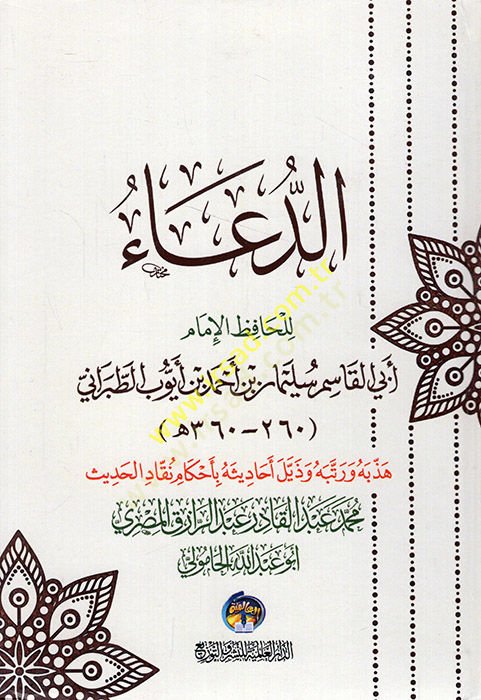 الدُّعَاءُ
للحَافِظِ الإِمَام
أبي القَاسِم سُلَيْمَان بن أَحْمَد بن أَيُّوب الطَّبَرَانِي
(٢٦٠-٣٦٠هـ)
هَذَّبَهُ وَرَتَّبَهُ وَذَيَّلَ أَحَادِيثَهُ بِأَحْكَامِ نُقَّادِ الحَدِيث
مُحمَّد عَبد القَادِر عَبد الرَّازِق المِصْرِي
أبو عَبْد الله الحَامُولِي
العالمية
الدار العالمية للنشر والتوزيع